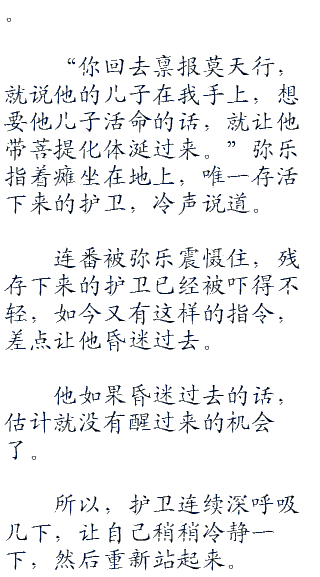 。
“你回去禀报莫天行，
就说他的儿子在我手上，想
要他儿子活命的话，就让他
带菩提化体涎过来。”弥乐
指着瘫坐在地上，唯一存活
下来的护卫，冷声说道。
连番被弥乐震慑住，残
存下来的护卫已经被吓得不
轻，如今又有这样的指令，
差点让他昏迷过去。
他如果昏迷过去的话，
估计就没有醒过来的机会
了。
所以，护卫连续深呼吸
几下，让自己稍稍冷静一
下，然后重新站起来。